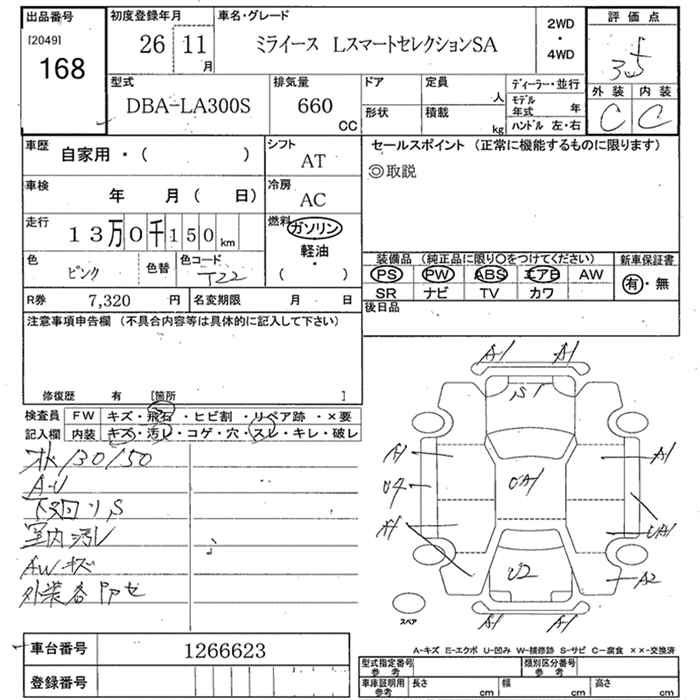 出品番号
[2049]
168
初度登録年月
26 11月
車名・グレード
ミライース LスマートセレクションSA
2WD
・
4WD
評価点
3.5
外装 内装
C C
型式
DBA-LA300S
排気量
660
CC
ドア
形状
定員
人
積載
kg
ディーラー・並行
モデル年式 年
ハンドル 左・右
車歴
自家用・( )
シフト
AT
車検
年 月( 日)
冷房
AC
走行
13万0千150km
燃料
ガソリン
軽油
・
( )
色
ピンク
色替
色コード
T22
R券
7,320 円
名変期限 月 日
セールスポイント (正常に機能するものに限ります)
◎取説
装備品 (純正品に限り○をつけてください)
PS PW ABS エアB AW
SR ナビ TV カワ
新車保証書
有・無
後日品
注意事項申告欄 (不具合内容等は具体的に記入して下さい)
修復歴 有 [箇所 ]
検査員
記入欄
FW キズ・飛石・ヒビ割・リペア跡・×要
内装 キズ・汚レ・コゲ・穴・スレ・キレ・破レ
130150
A・U
下回りS
室内汚レ
AWキズ
A1 A1
S1
A1 A1
U4 UA1
A1 UA1
A2
U2
A1 A1
スペア
A-キズ E-エクボ U-凹み W-補修跡 S-サビ C-腐食 ××-交換済
車台番号
1266623
登録番号
型式指定番号
参考
類別区分番号
参考
車庫証明用
参考
長さ cm
幅 cm
高さ cm